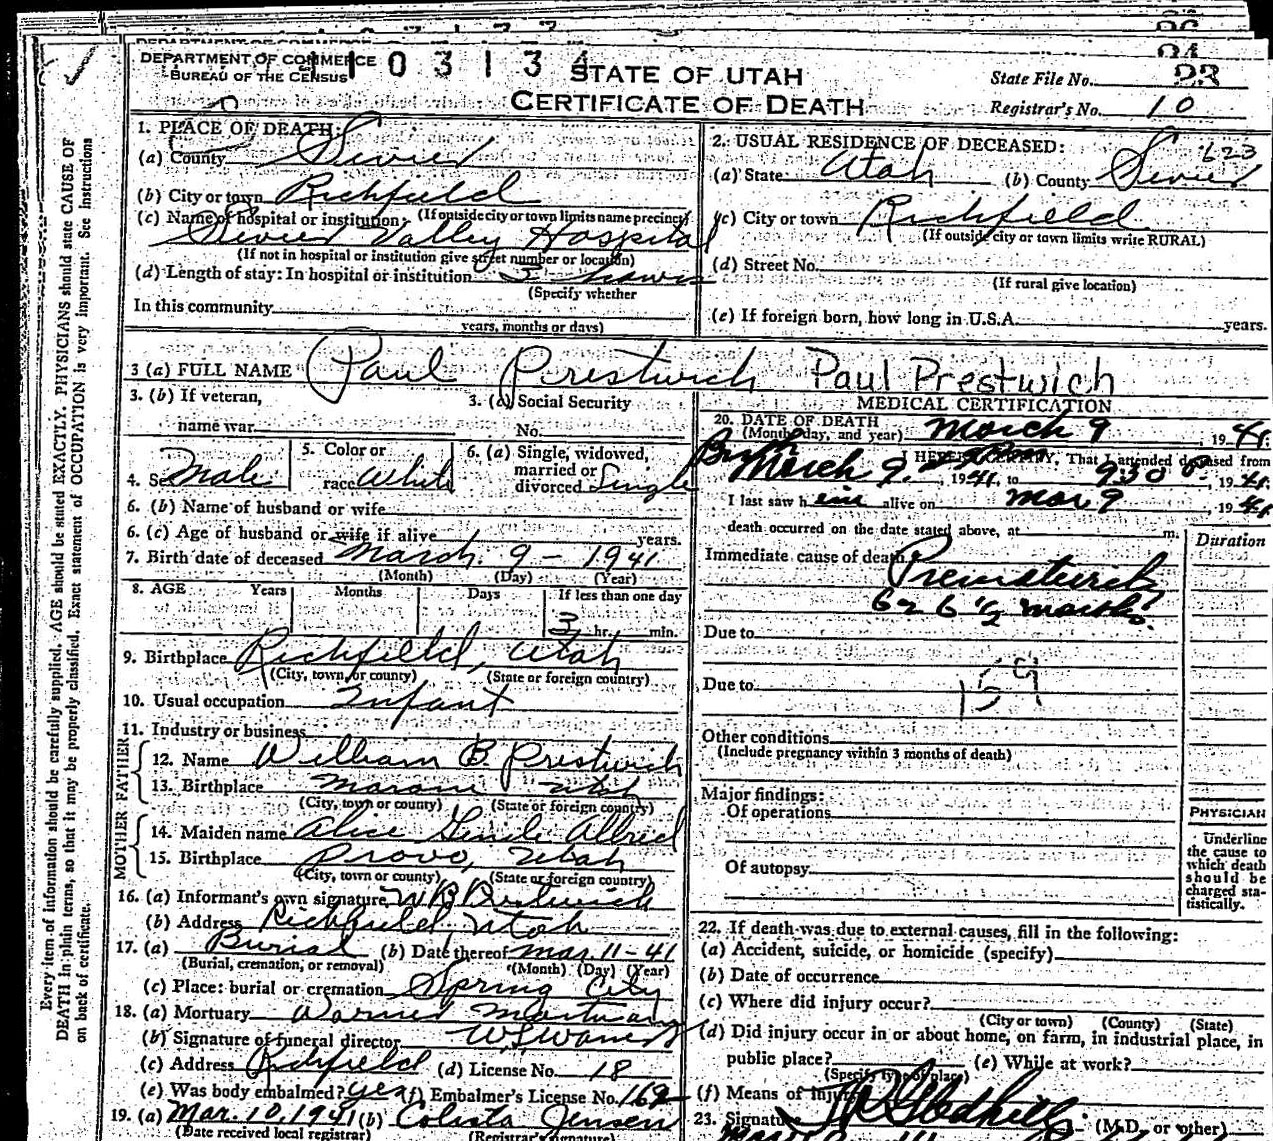 DEPARTMENT OF COMMERCE
BUREAU OF THE CENSUS
1 0 3 1 3 4
STATE OF UTAH
CERTIFICATE OF DEATH
State File No. 23
Registrar's No. 10
1. PLACE OF DEATH:
(a) County Sevier
(b) City or town Richfield
(If outside city or town limits name precinct)
(c) Name of hospital or institution:
Sevier Valley Hospital
(If not in hospital or institution give street number or location)
(d) Length of stay: In hospital or institution 3 hours
(Specify whether
In this community
years, months or days)
2. USUAL RESIDENCE OF DECEASED:
623
(a) State Utah (b) County Sevier
(c) City or town Richfield
(If outside city or town limits write RURAL)
(d) Street No.
(If rural give location)
(e) If foreign born, how long in U.S.A. years.
3 (a) FULL NAME Paul Prestwich Paul Prestwich
3. (b) If veteran,
name war
3. (c) Social Security
No.
4. Sex Male
5. Color or
race White
6. (a) Single, widowed,
married or
divorced Single
6. (b) Name of husband or wife
6. (c) Age of husband or wife if alive years.
7. Birth date of deceased March 9 - 1941
(Month) (Day) (Year)
8. AGE Years Months Days If less than one day
3 hr. min.
9. Birthplace Richfield, Utah
(City, town, or county) (State or foreign country)
10. Usual occupation Infant
11. Industry or business
FATHER
12. Name William B Prestwich
13. Birthplace Utah
(City, town or county) (State or foreign country)
MOTHER
14. Maiden name Alice Allred
15. Birthplace Provo, Utah
(City, town or county) (State or foreign country)
16. (a) Informant's own signature W B Prestwich
(b) Address Richfield, Utah
17. (a) Burial (b) Date thereof Mar. 11-41
(Burial, cremation, or removal) (Month) (Day) (Year)
(c) Place: burial or cremation Spring City
18. (a) Mortuary Mortuary
(b) Signature of funeral director
(c) Address Richfield (d) License No. 18
(e) Was body embalmed? yes (f) Embalmer's License No. 162
19. (a) Mar. 10, 1941 (b) Jensen
(Date received local registrar) (Registrar's signature)
MEDICAL CERTIFICATION
20. DATE OF DEATH
(Month, day, and year) March 9, 1941.
I HEREBY CERTIFY, That I attended deceased from
Birth
March 9, 1941, to 930 P. 1941.
I last saw him alive on Mar 9, 1941
death occurred on the date stated above, at m.
Duration
Immediate cause of death
Prematurity
6 1/2 months
Due to
159
Due to
Other conditions
(Include pregnancy within 3 months of death)
Major findings:
Of operations
Of autopsy
PHYSICIAN
Underline
the cause to
which death
should be
charged sta-
tistically.
22. If death was due to external causes, fill in the following:
(a) Accident, suicide, or homicide (specify)
(b) Date of occurrence
(c) Where did injury occur?
(City or town) (County) (State)
(d) Did injury occur in or about home, on farm, in industrial place, in
public place? (e) While at work?
(Specify type of place)
(f) Means of injury
23. Signature (M.D. or other)
Every item of information should be carefully supplied. AGE should be stated EXACTLY. PHYSICIANS should state CAUSE OF
DEATH in plain terms, so that it may be properly classified. Exact statement of OCCUPATION is very important. See Instructions
on back of certificate.